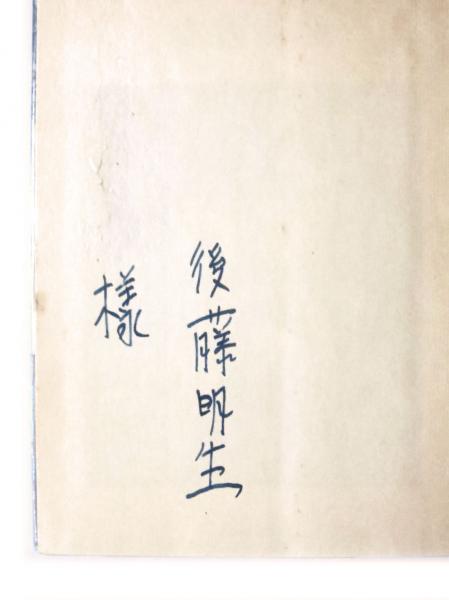 後藤明生
様